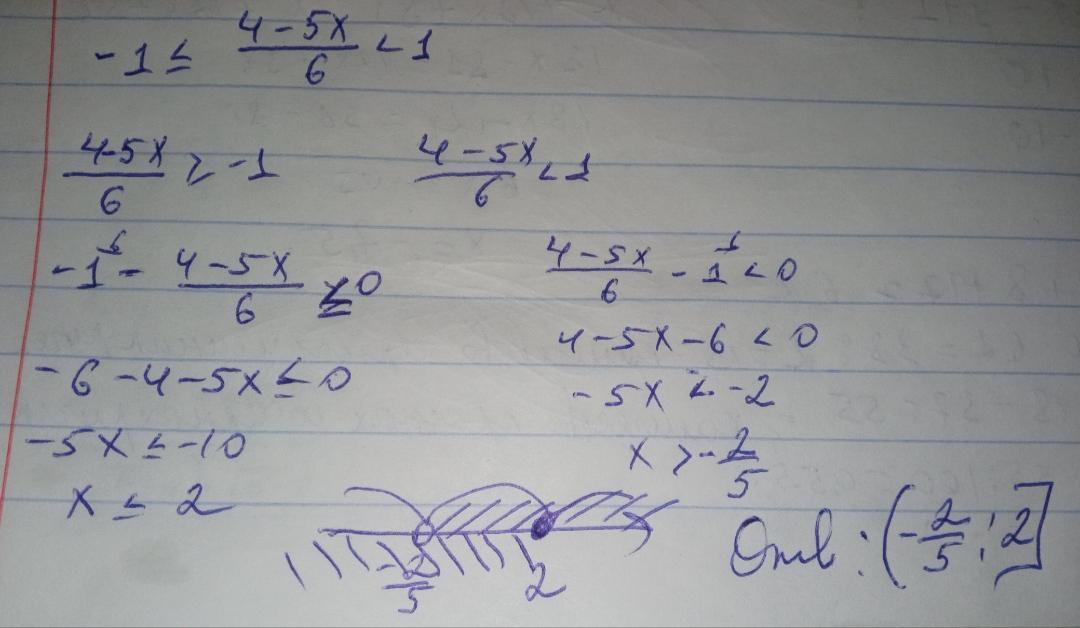 -1 ≤ (4-5x)/6 < 1
(4-5x)/6 ≥ -1
-1⁶ - (4-5x)/6 ≤ 0
-6-4-5x ≤ 0
-5x ≤ -10
x ≤ 2
(4-5x)/6 < 1
(4-5x)/6 - 1⁶ < 0
4-5x-6 < 0
-5x < -2
x > -2/5
-2/5
2
Отв: (-2/5; 2]